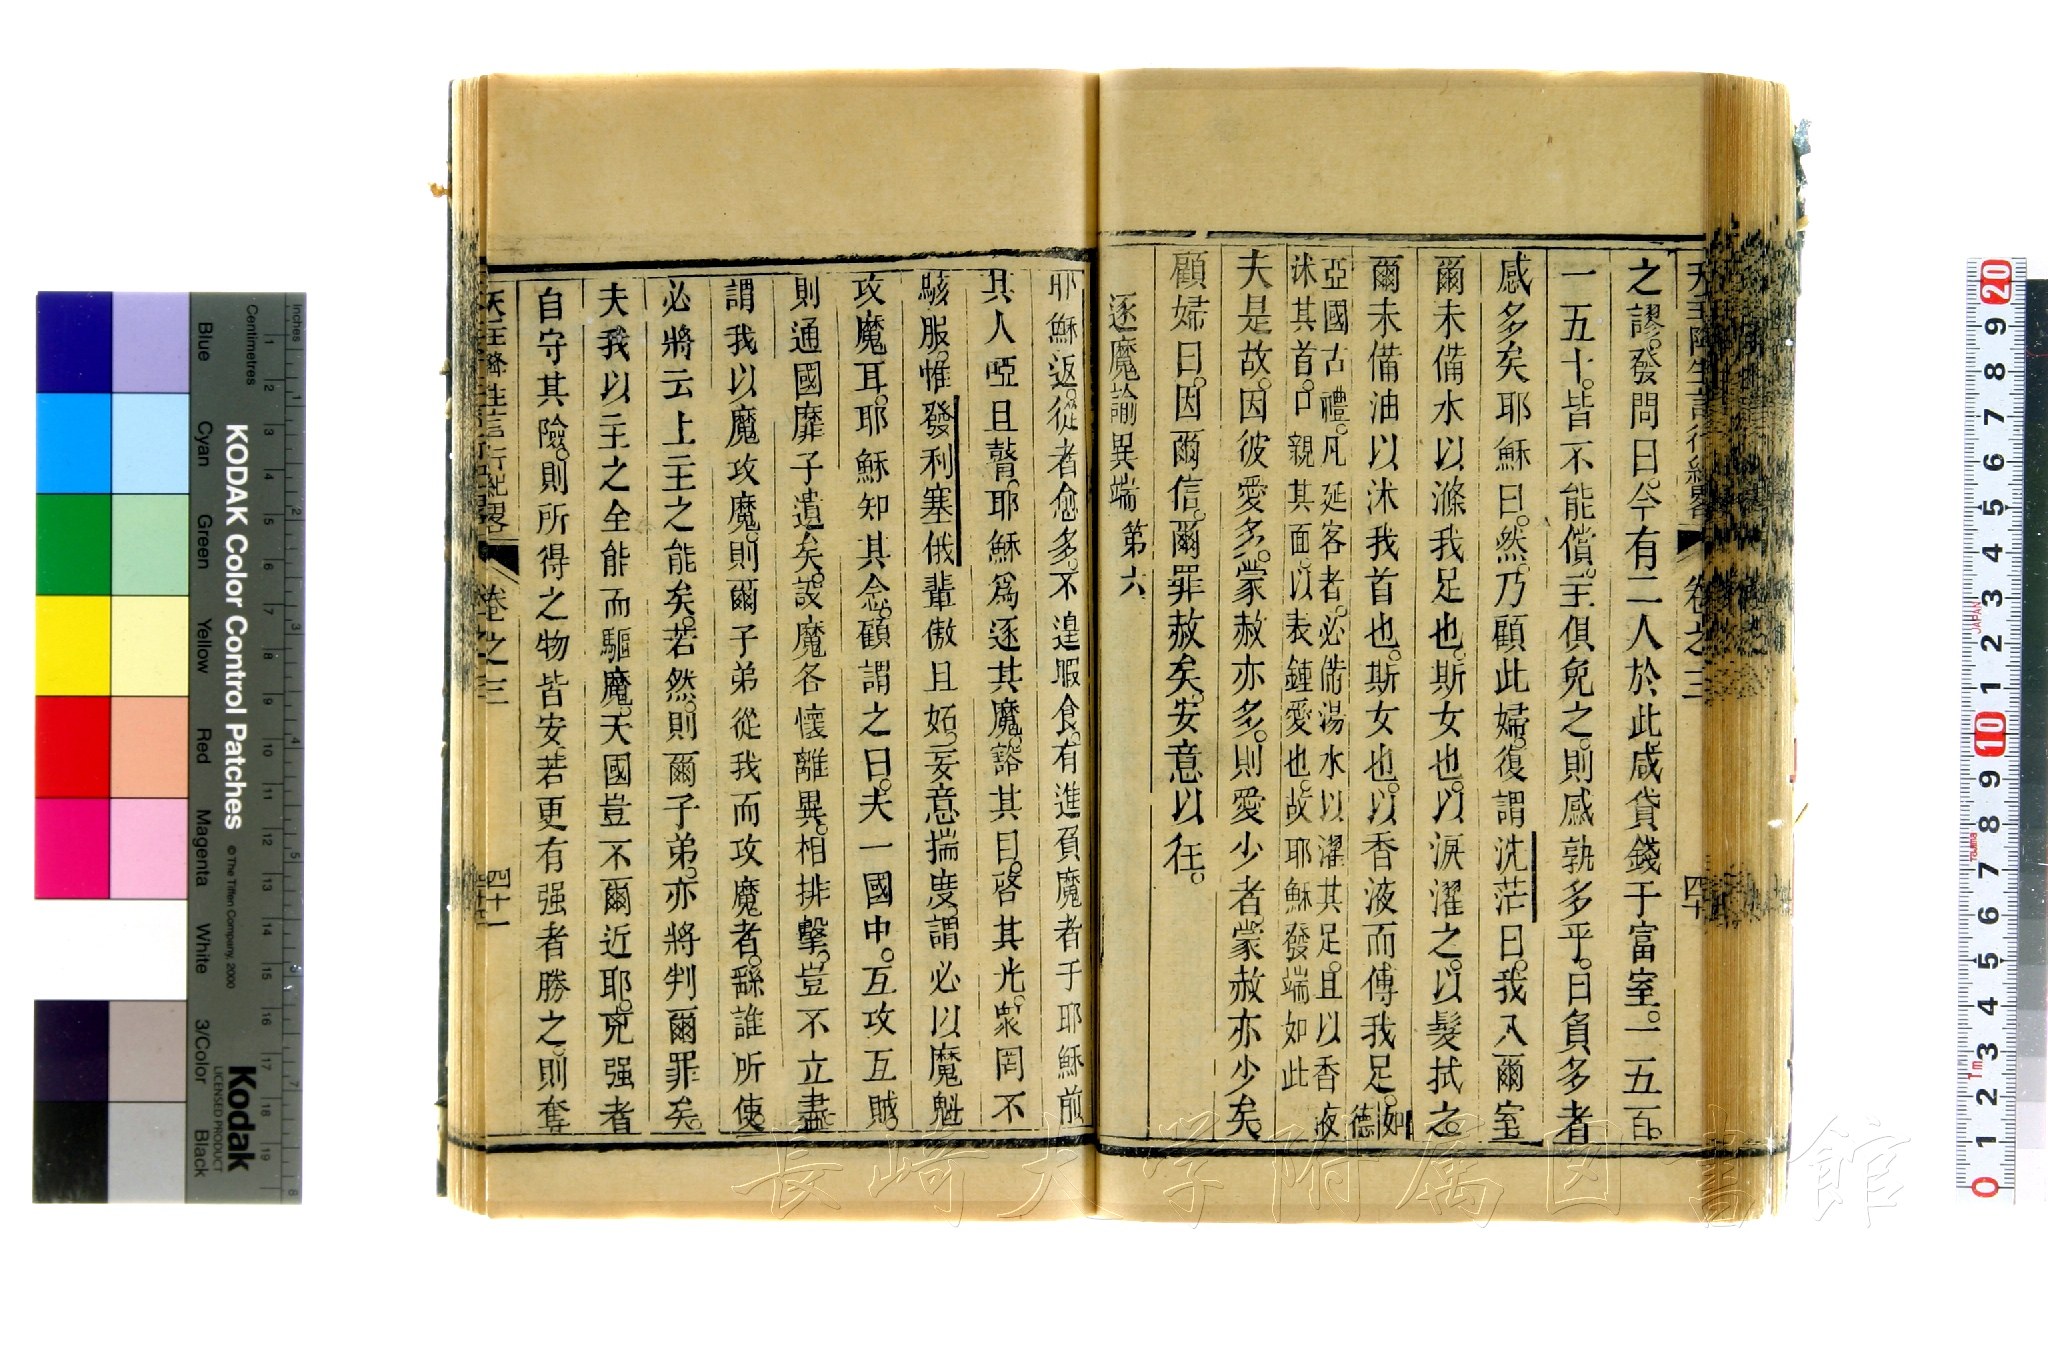 天主降生言行紀畧 卷之三 四十
之謬。發問曰。今有二人於此咸貸錢于富室。一五百。
一五十。皆不能償。主俱免之。則感孰多乎。曰負多者
感多矣耶穌曰。然。乃顧此婦。復謂沈茫曰。我入爾室
爾未備水以滌我足也。斯女也。以淚濯之。以髮拭之。
爾未備油以沐我首也。斯女也。以香液而傅我足。如德
亞國古禮。凡延客者。必備湯水以濯其足。且以香液
沐其首。口親其面。以表鍾愛也。故耶穌發端如此
夫是故。因彼愛多。蒙赦亦多。則愛少者。蒙赦亦少矣。
顧婦曰。因爾信。爾罪赦矣。安意以往。
逐魔諭異端 第六
耶穌返。從者愈多。不遑暇食。有進負魔者于耶穌前
其人啞且瞽。耶穌爲逐其魔。豁其目。啓其光。衆罔不
駭服。惟發利塞俄輩傲且妬。妄意揣度謂必以魔魁
攻魔耳。耶穌知其念。顧謂之曰。夫一國中。互攻互賊。
則通國靡孑遺矣。設魔各懷離異。相排擊。豈不立盡
謂我以魔攻魔。則爾子弟從我而攻魔者。繇誰所使。
必將云上主之能矣。若然。則爾子弟。亦將判爾罪矣。
夫我以主之全能而驅魔。天國豈不爾近耶。兇强者
自守其險。則所得之物皆安若更有强者勝之。則奪
天主降生言行紀畧 卷之三 四十一
KODAK Color Control Patches
© The Tiffen Company, 2000
Kodak
LICENSED PRODUCT
Inches
Centimetres
Blue
Cyan
Green
Yellow
Red
Magenta
White
3/Color
Black
長崎大学附属図書館
JAPAN